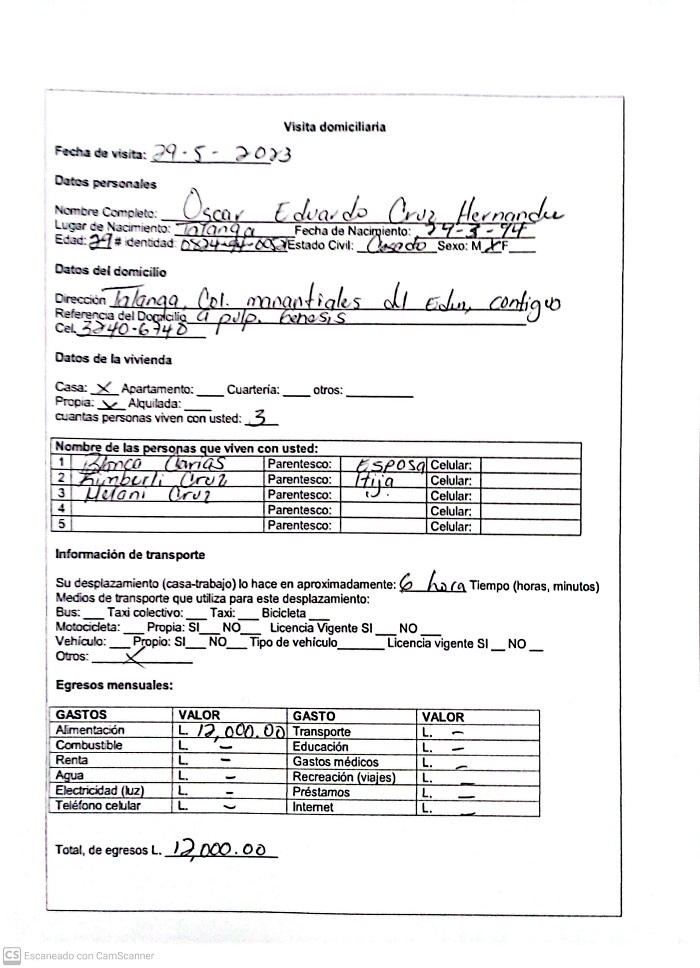 Visita domiciliaria
Fecha de visita: 29-5-2023
Datos personales
Nombre Completo: Oscar Eduardo Cruz Hernandez
Lugar de Nacimiento: Talanga Fecha de Nacimiento: 29-3-94
Edad: 29 # identidad: 0824-94- Estado Civil: Casado Sexo: M X F
Datos del domicilio
Dirección Talanga, Col. manantiales del Eden, contiguo
Referencia del Domicilio a pulp. Genesis
Cel. 3240-6740
Datos de la vivienda
Casa: X Apartamento: Cuartería: otros:
Propia: X Alquilada:
cuantas personas viven con usted: 3
Nombre de las personas que viven con usted:
1 Blanca Parentesco: Esposa Celular:
2 Kimberli Cruz Parentesco: Hija Celular:
3 Melani Cruz Parentesco: Celular:
4 Parentesco: Celular:
5 Parentesco: Celular:
Información de transporte
Su desplazamiento (casa-trabajo) lo hace en aproximadamente: 6 hora Tiempo (horas, minutos)
Medios de transporte que utiliza para este desplazamiento:
Bus: Taxi colectivo: Taxi: Bicicleta
Motocicleta: Propia: SI NO Licencia Vigente SI NO
Vehículo: Propio: SI NO Tipo de vehículo Licencia vigente SI NO
Otros: X
Egresos mensuales:
GASTOS VALOR GASTO VALOR
Alimentación L. 12,000.00 Transporte L. -
Combustible L. - Educación L. -
Renta L. - Gastos médicos L. -
Agua L. - Recreación (viajes) L. -
Electricidad (luz) L. - Préstamos L. -
Teléfono celular L. - Internet L. -
Total, de egresos L. 12,000.00
CS Escaneado con CamScanner